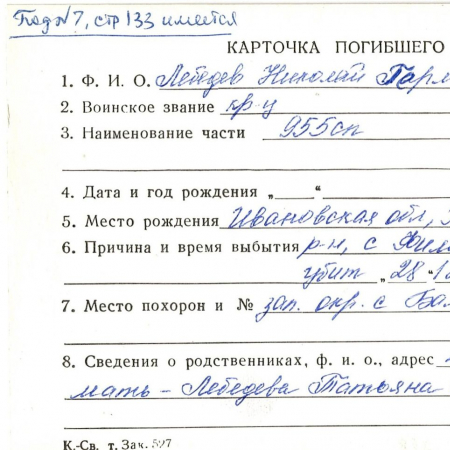 Под №7, стр 133 имеется
КАРТОЧКА ПОГИБШЕГО
1. Ф. И. О. Лебедев Николай
2. Воинское звание кр-ц
3. Наименование части 955сп
4. Дата и год рождения „ “
5. Место рождения Ивановская обл,
6. Причина и время выбытия р-н, с
убит „28“
7. Место похорон и № зап. окр. с
8. Сведения о родственниках, ф. и. о., адрес
мать – Лебедева Татьяна
К.-Св. т. Зак. 527